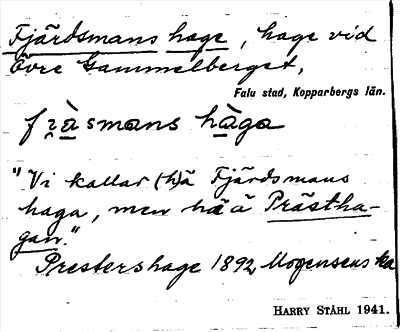 Fjärdsmans hage, hage vid
Övre Gammelberget,
Falu stad, Kopparbergs län.
fi̯ạ̀smans hàga
"Vi kallar (h)ä Fjärdsmans
haga, men hä ä Prästha-
gan."
Prestershage 1892, Mogensens ka
HARRY STÅHL 1941.